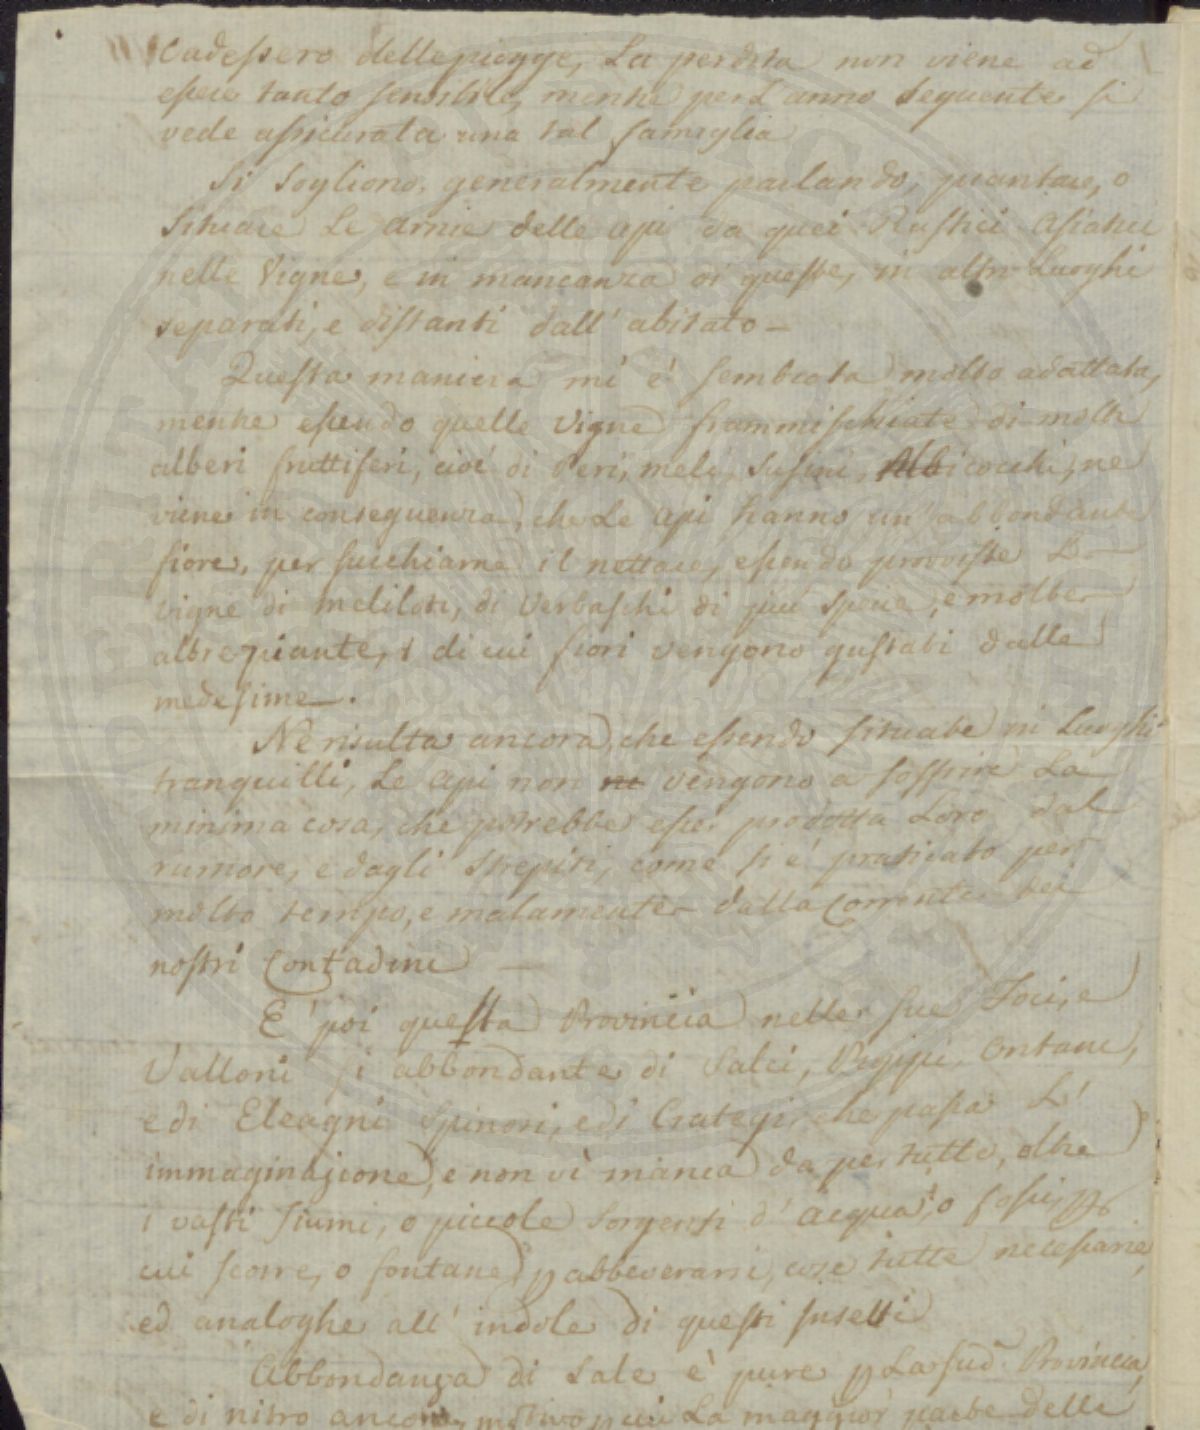 cadessero delle piogge, La perdita non viene ad
essere tanto sensibile, mentre per L'anno seguente si
vede assicurata una tal famiglia
Si Sogliono, generalmente parlando, piantare, o
situare Le Arnie delle api da quei Rustici Asiatici
nelle Vigne, e in mancanza di queste, in altri Luoghi
separati, e distanti dall' abitato –
Questa maniera mi è sembrata molto adattata,
mentre essendo quelle Vigne frammischiate di molti
alberi fruttiferi, cioè di Peri, meli, Susini, Albicocchi, ne
viene in conseguenza, che Le Api hanno un' abbondante
fiore, per succhiarne il nettare, essendo provviste Le
vigne di meliloti, di Verbaschi di più specie, e molte
altre piante, i di cui fiori vengono gustati dalle
medesime.
Ne risulta ancora, che essendo situate in Luoghi
tranquilli, Le Api non vengono a soffrire La
minima cosa, che potrebbe esser prodotta Loro dal
rumore, e dagli Strepiti, come si è praticato per
molto tempo, e malamente dalla Corrente dei
nostri Contadini –
E' poi questa Provincia nelle sue Foci, e
Valloni sì abbondante di Salci, Ontani,
e di Eleagni Spinosi, e di Crategi, che passa L'
immaginazione, e non vi manca da per tutto, oltre
i vasti fiumi, o piccole Sorgenti d' acqua, o fossi, p
cui scorre, o fontane p abbeverarsi, cose tutte necessarie,
ed analoghe all' indole di questi Insetti
Abbondanza di Sale è pure p La sud. Provincia,
e di nitro ancora, motivo p cui La maggior parte delle